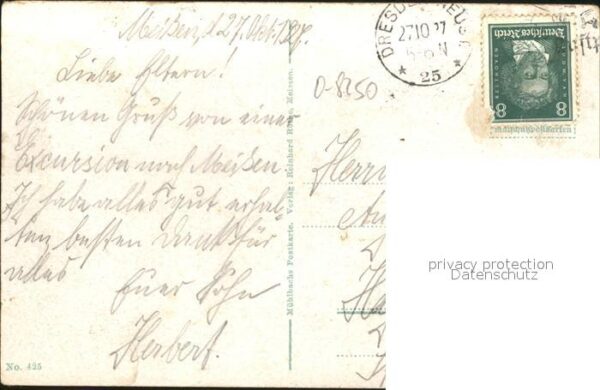 Meißen, d 27. Okt. 1927.
Liebe Eltern!
Schönen Gruß von einer
Excursion nach Meißen
Ich habe alles gut erhal-
ten besten Dank für
alles
Euer Sohn
Herbert.
No. 425
Mühlbachs Postkarte. Verlag: Reinhard Rothe, Meissen.
O-8250
DRESDEN-NEUST.
27.10.27
5-6 N
* 25 *
Deutsches Reich
LUDWIG VAN
BEETHOVEN
8 8
Herrn
privacy protection
Datenschutz